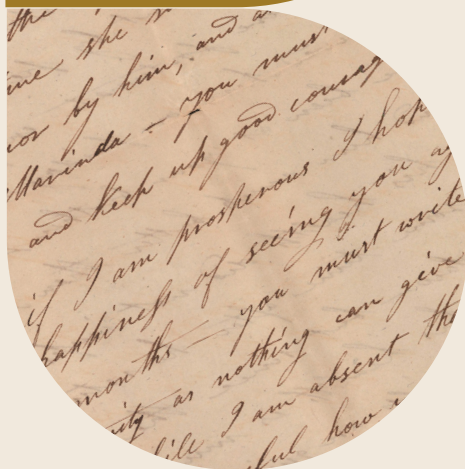 the
she
nor by him, and
Marinda – you must
and keep up good courag
if I am prosperous I hop
happiness of seeing you ag
months – you must write
ity as nothing can give
ile I am absent the
ful how